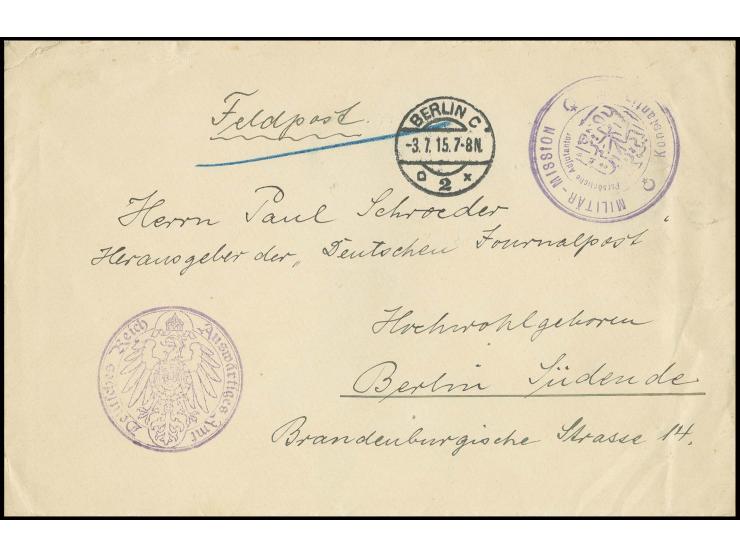 Feldpost.
BERLIN C
-3.7.15.7-8N.
a 2 x
MILITÄR-MISSION
Konstantin
Persönliche Adjutantur
Herrn Paul Schroeder
Herausgeber der „Deutschen Journalpost"
Hochwohlgeboren
Berlin Südende
Brandenburgische Strasse 14.
Deutsches Reich Auswärtiges Amt